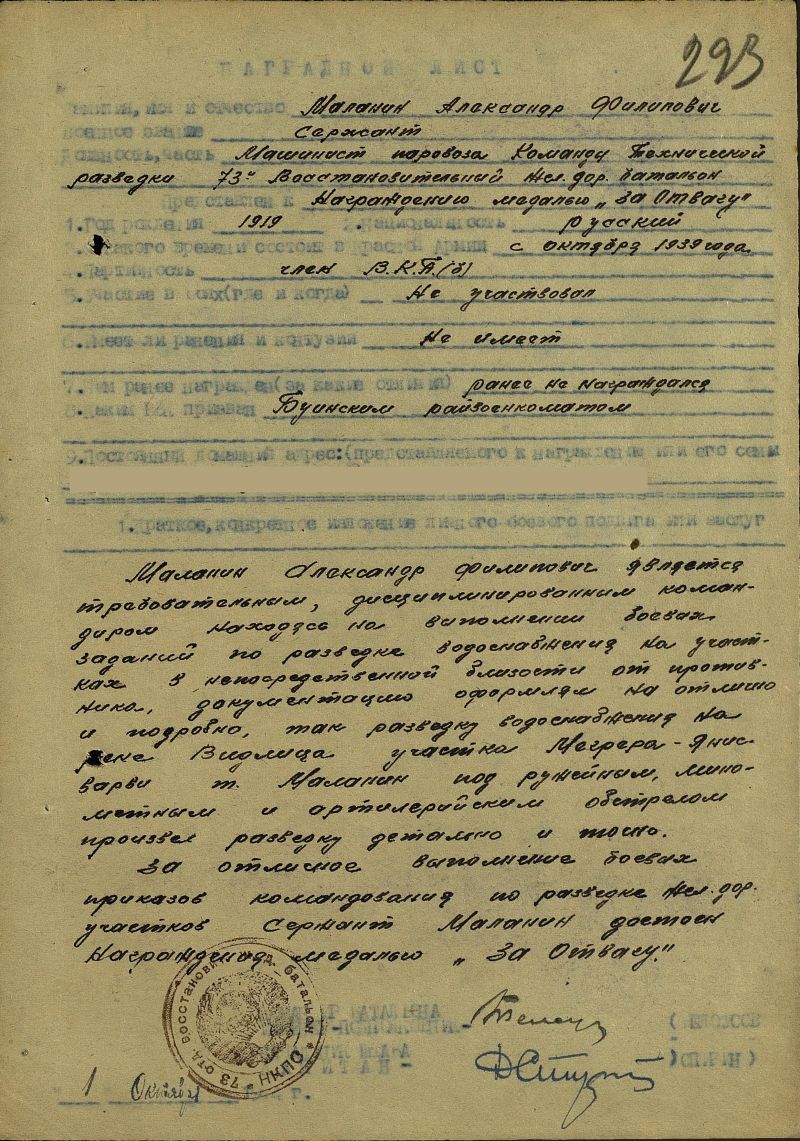 293
НАГРАДНОЙ ЛИСТ
Фамилия, имя и отчество Маланин Александр Филипович
Военное звание Сержант
Должность, часть Машинист паровоза Команды Технической
разведки 73й Восстановительный жел. дор. батальон
Представлен к Награждению медалью „За Отвагу"
1. Год рождения 1919 2. Национальность русский
3. С какого времени состоит в Красной Армии с октября 1939 года
4. Партийность член В.К.П.(б)
5. Участие в боях (где и когда) Не участвовал
6. Имеет ли ранения и контузии Не имеет
7. Чем ранее награжден (за какие отличия) ранее не награждался
8. Каким РВК призван Буинским райвоенкоматом
9. Постоянный домашний адрес: (представляемого к награждению или его семьи
1. Краткое, конкретное изложение личного боевого подвига или заслуг
Маланин Александр Филипович является
требовательным, дисциплинированним коман-
диром находясь на виполнении боевах
заданий по разведке водоснабжения на участ-
ках в непосредственной близости от против-
ника, дакументацию оформлял на отлично
и подробно, так разведку водоснабжения на
реке Видлица участка Мегрера - Янис-
варви т. Маланин под ружейным, мино-
метным и артилерийским обстрелом
произвел разведку детально и точно.
За отличное выполнение боевах
приказов командования по разведке жел. дор.
участков Сержант Маланин достоен
Награждения медалью „За Отвагу."
73 отд. восстановит. ж.д. батальон
1 Октября г.